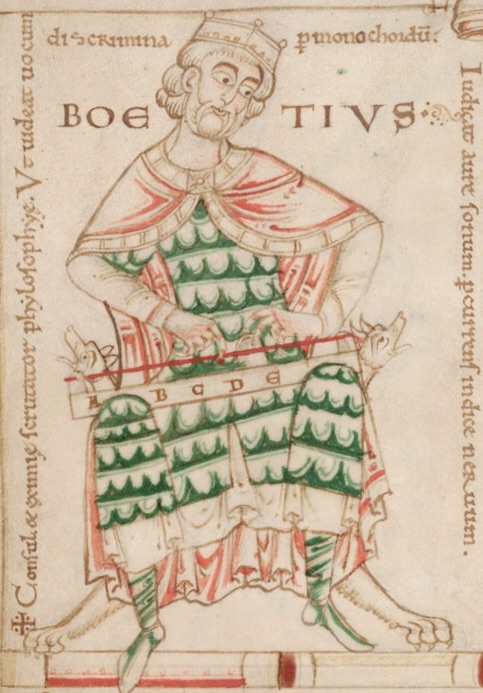 ✠ Consul & eximię scrutator phylosophyę. Vt uideat uocum
discrimina ꝑ monochordū:
Iudicat aure sonum. ꝑcurrens indice neruum.
BOE TIVS
A B C D E